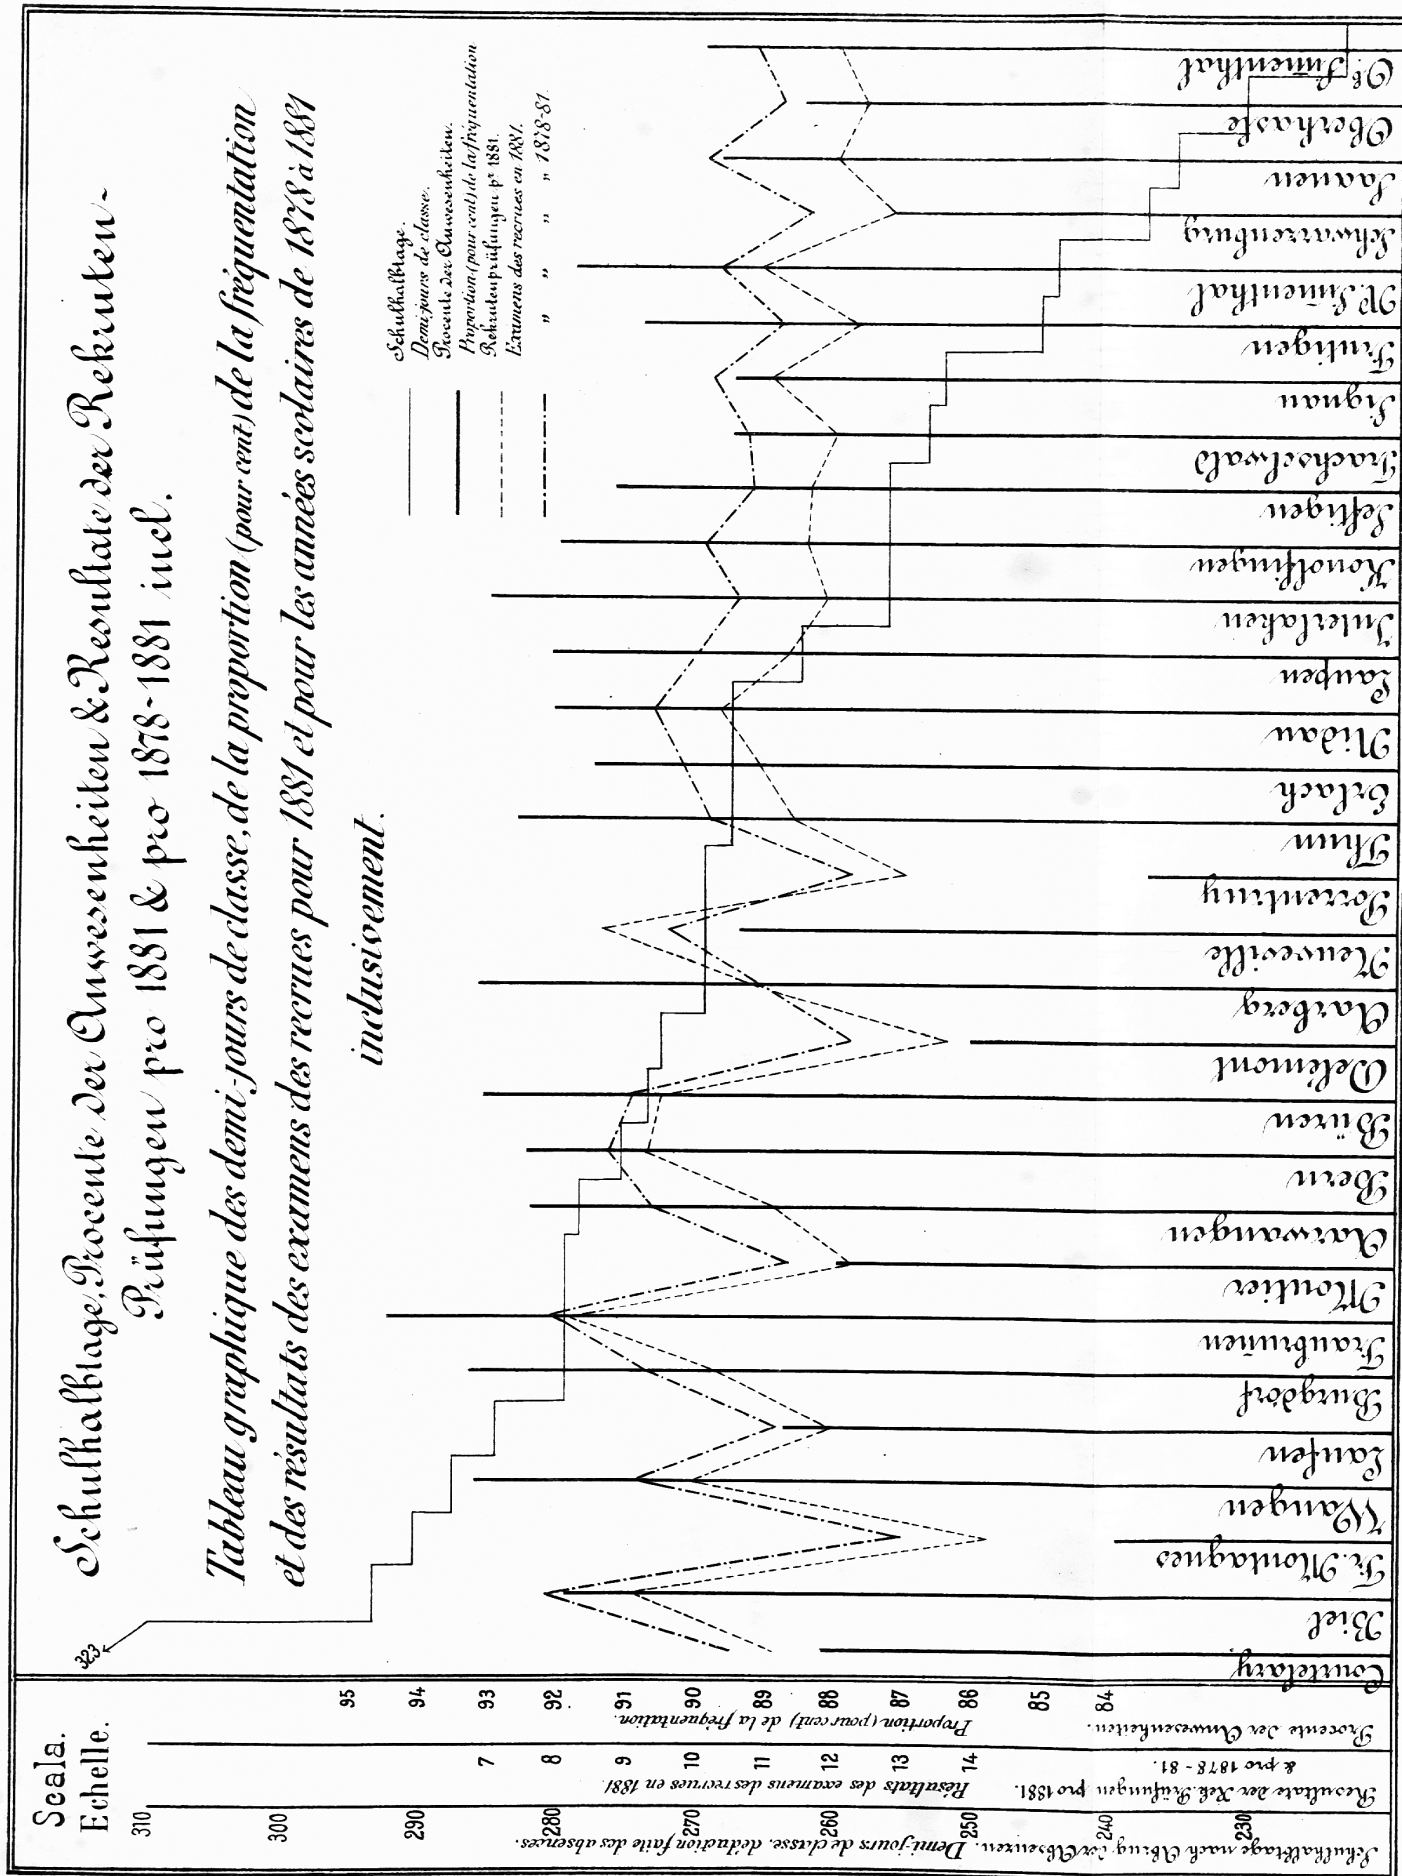 Schulhalbtage, Procente der Anwesenheiten & Resultate der Rekruten-
Prüfungen pro 1881 & pro 1878-1881 incl.
Tableau graphique des demi-jours de classe, de la proportion (pour cent) de la fréquentation
et des résultats des examens des recrues pour 1881 et pour les années scolaires de 1878 à 1881
inclusivement.
Schulhalbtage.
Demi-jours de classe.
Procente der Anwesenheiten.
Proportion (pour cent) de la fréquentation
Rekrutenprüfungen pr 1881.
Examens des recrues en 1881.
" " " 1878-81.
Scala.
Echelle.
310
300
290
280
270
260
250
240
230
Schulhalbtage nach Abzug der Absenzen. Demi-jours de classe, déduction faite des absences.
7
8
9
10
11
12
13
14
Resultate der Rek. Prüfungen pro 1881.
& pro 1878-81.
Résultats des examens des recrues en 1881.
95
94
93
92
91
90
89
88
87
86
85
84
Procente der Anwesenheiten.
Proportion (pour cent) de la fréquentation.
323
Courtelary
Biel
Fr. Montagnes
Wangen
Laufen
Burgdorf
Fraubrunnen
Moutier
Aarwangen
Bern
Büren
Delémont
Aarberg
Neuveville
Porrentruy
Thun
Erlach
Nidau
Laupen
Interlaken
Konolfingen
Seftigen
Trachselwald
Signau
Frutigen
N. Sim̄enthal
Schwarzenburg
Saanen
Oberhasle
Ob. Sim̄enthal